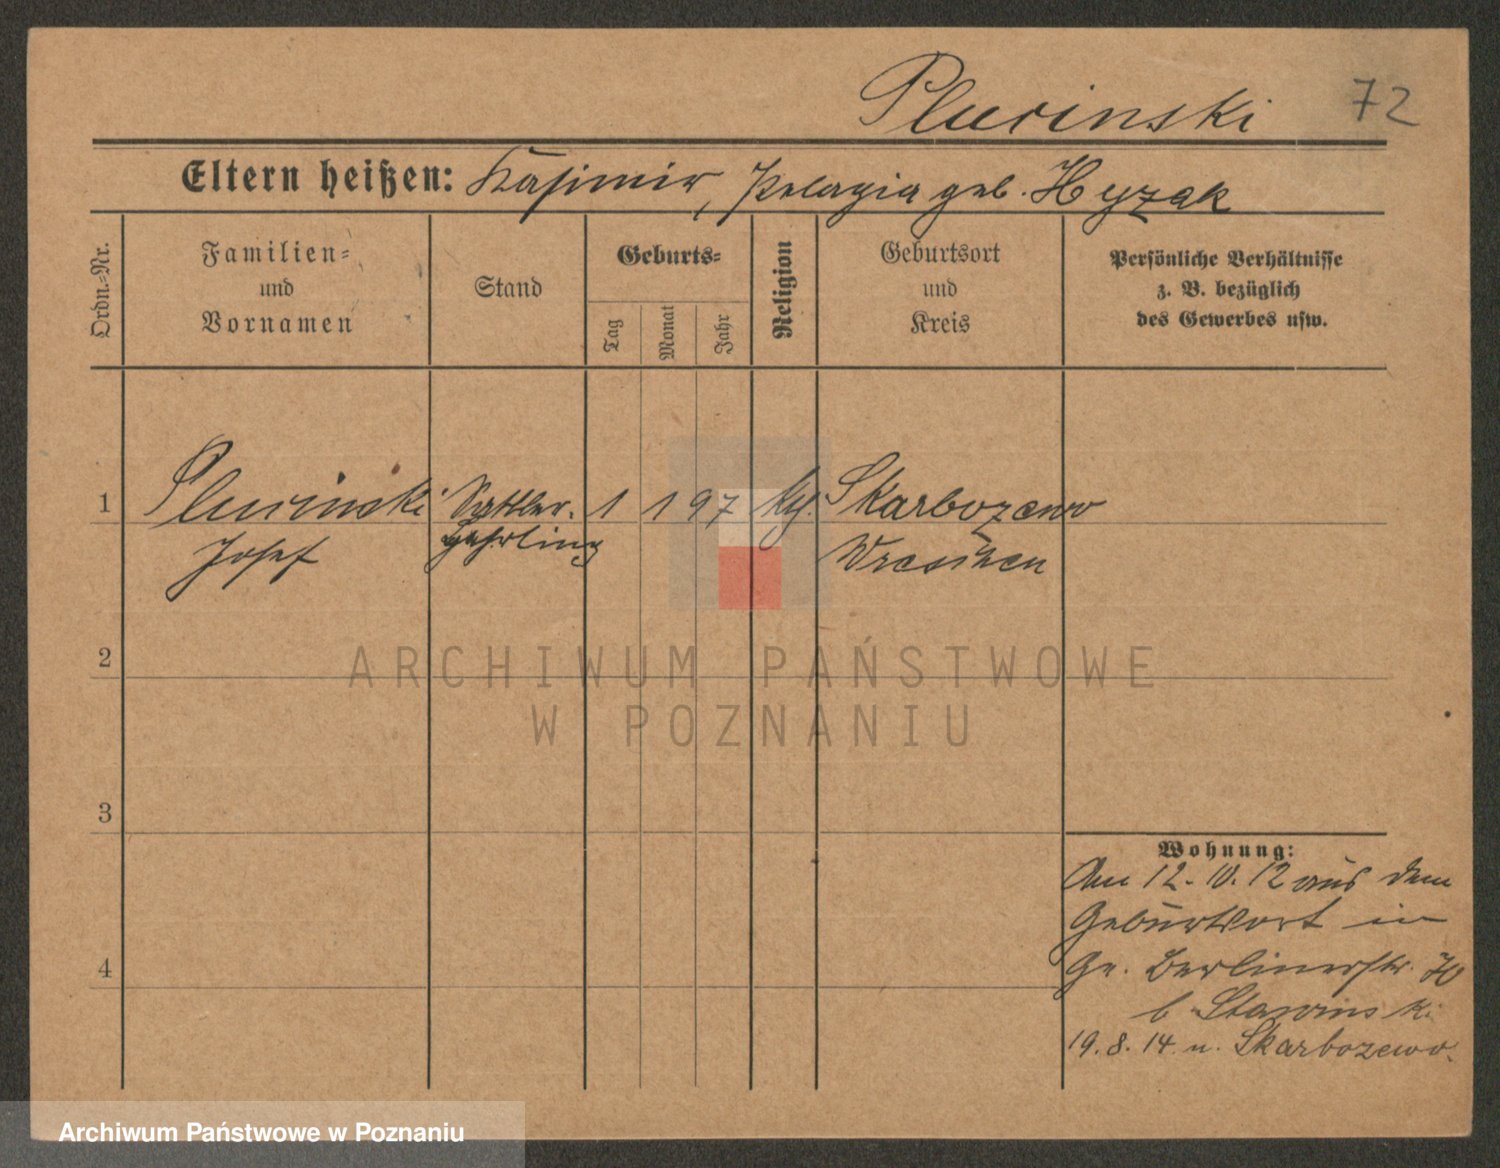 Plucinski 72
Eltern heißen: Kasimir, Pelagia geb. Hyzak
Ordn.-Nr.
Familien-
und
Vornamen
Stand
Geburts-
Tag
Monat
Jahr
Religion
Geburtsort
und
Kreis
Persönliche Verhältnisse
z. B. bezüglich
des Gewerbes usw.
1 Plucinski Sattler- 1 1 97 Skarbozewo
Josef Lehrling Wreschen
2
3
4
Wohnung:
Am 12. 10. 12 aus dem
Geburtsort in
Gr. Berlinerstr.
b Stawinski
19. 8. 14 n. Skarbozewo.
ARCHIWUM PAŃSTWOWE
W POZNANIU
Archiwum Państwowe w Poznaniu